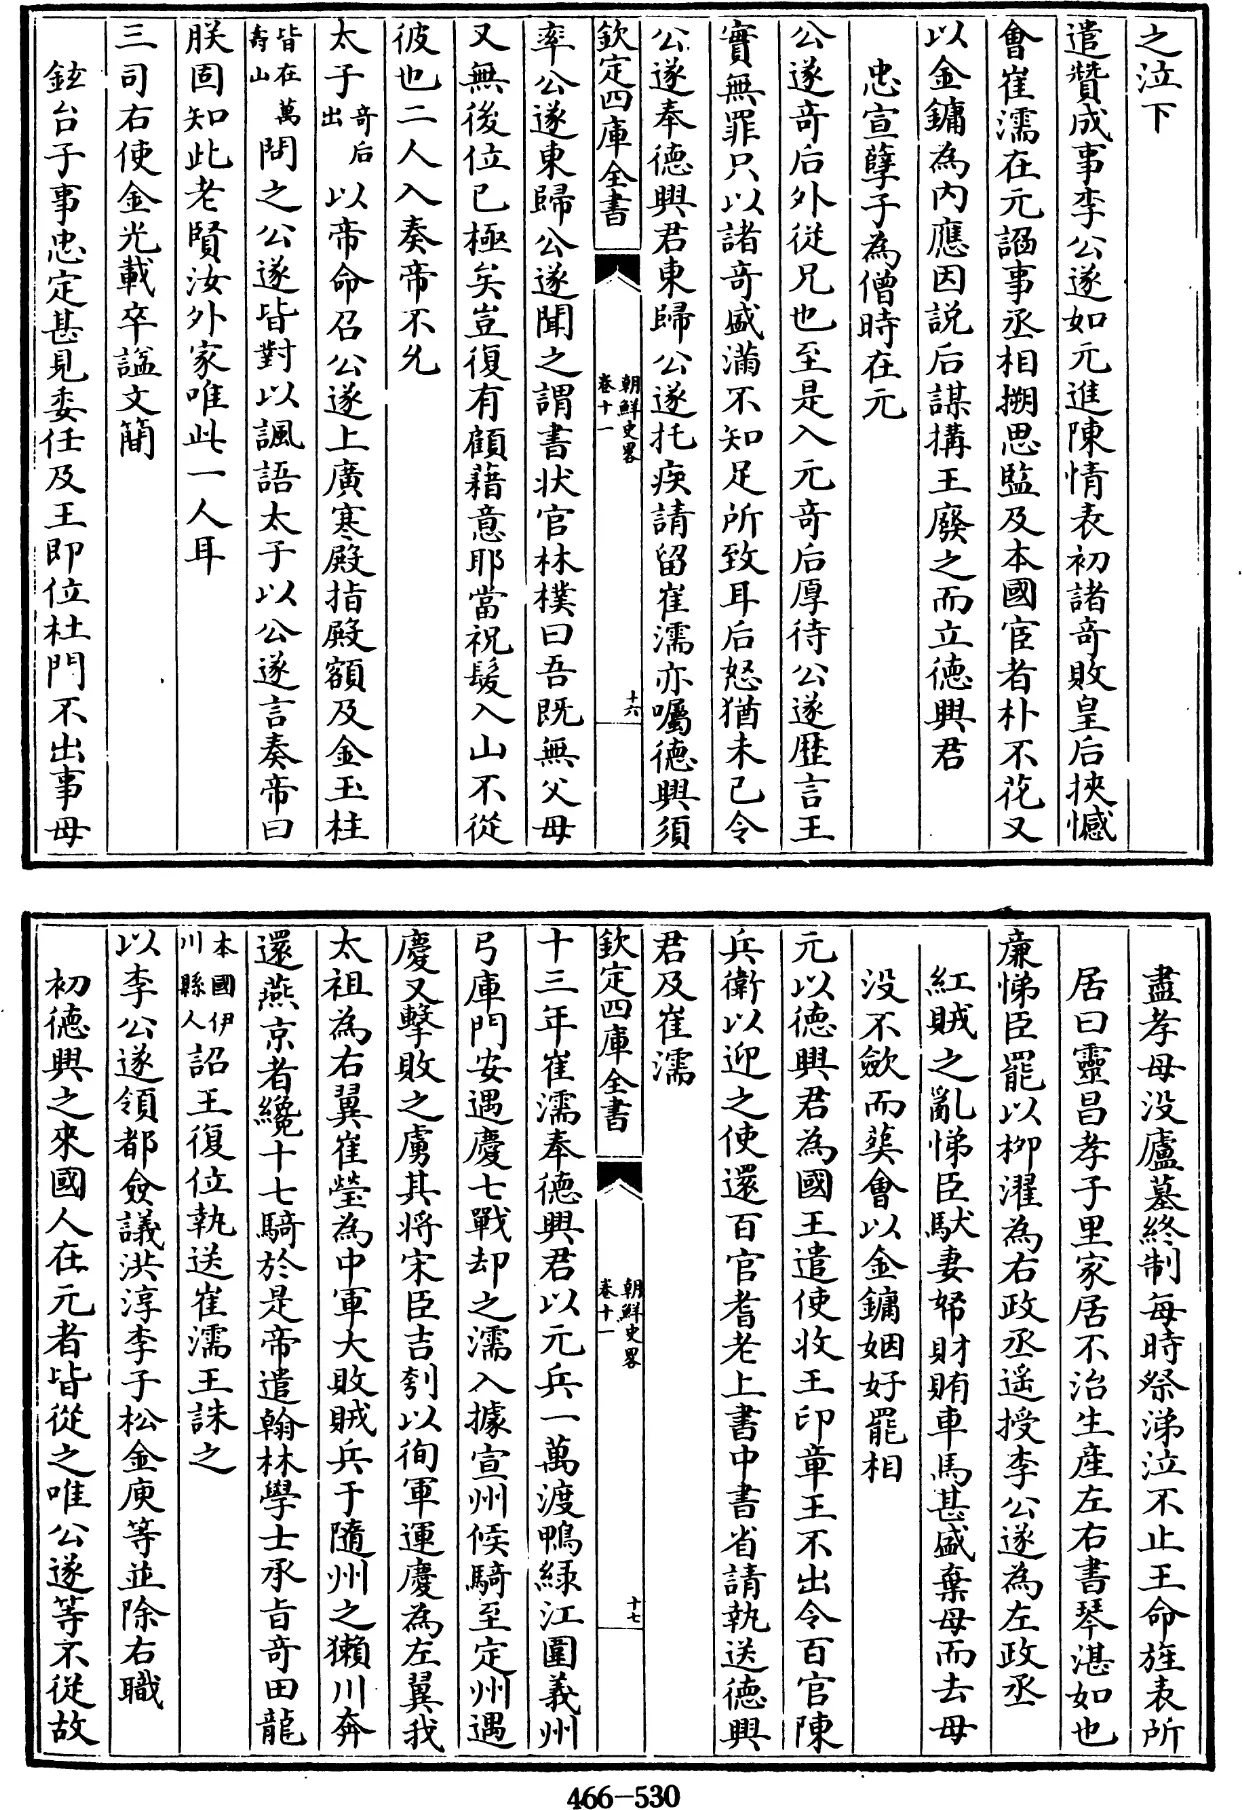 之泣下
遣贊成事李公遂如元進陳情表初諸奇敗皇后挾憾
會崔濡在元謟事丞相搠思監及本國宦者朴不花又
以金鏞為內應因説后謀搆王廢之而立德興君
忠宣孽子為僧時在元
公遂奇后外從兄也至是入元奇后厚待公遂歴言王
實無罪只以諸奇盛滿不知足所致耳后怒猶未已令
公遂奉德興君東歸公遂托疾請留崔濡亦囑德興須
欽定四庫全書
朝鮮史畧
卷十一
十六
率公遂東歸公遂聞之謂書狀官林樸曰吾既無父母
又無後位已極矣豈復有顧藉意耶當祝髮入山不從
彼也二人入奏帝不允
太子奇后出以帝命召公遂上廣寒殿指殿額及金玉柱
皆在萬壽山問之公遂皆對以諷語太子以公遂言奏帝曰
朕固知此老賢汝外家唯此一人耳
三司右使金光載卒諡文簡
鉉台子事忠定甚見委任及王即位杜門不出事母
盡孝母没廬墓終制每時祭涕泣不止王命旌表所
居曰靈昌孝子里家居不治生産左右書琴湛如也
亷悌臣罷以柳濯為右政丞遥授李公遂為左政丞
紅賊之亂悌臣馱妻帑財賄車馬甚盛棄母而去母
没不歛而葬會以金鏞姻好罷相
元以德興君為國王遣使收王印章王不出令百官陳
兵衛以迎之使還百官耆老上書中書省請執送德興
君及崔濡
欽定四庫全書
朝鮮史畧
卷十一
十七
十三年崔濡奉德興君以元兵一萬渡鴨綠江圍義州
弓庫門安遇慶七戰却之濡入據宣州候騎至定州遇
慶又擊敗之虜其将宋臣吉刳以徇軍運慶為左翼我
太祖為右翼崔瑩為中軍大敗賊兵于隨州之獺川奔
還燕京者纔十七騎於是帝遣翰林學士承旨奇田龍
本國伊川縣人詔王復位執送崔濡王誅之
以李公遂領都僉議洪淳李子松金庾等並除右職
初德興之來國人在元者皆從之唯公遂等不從故
466-530